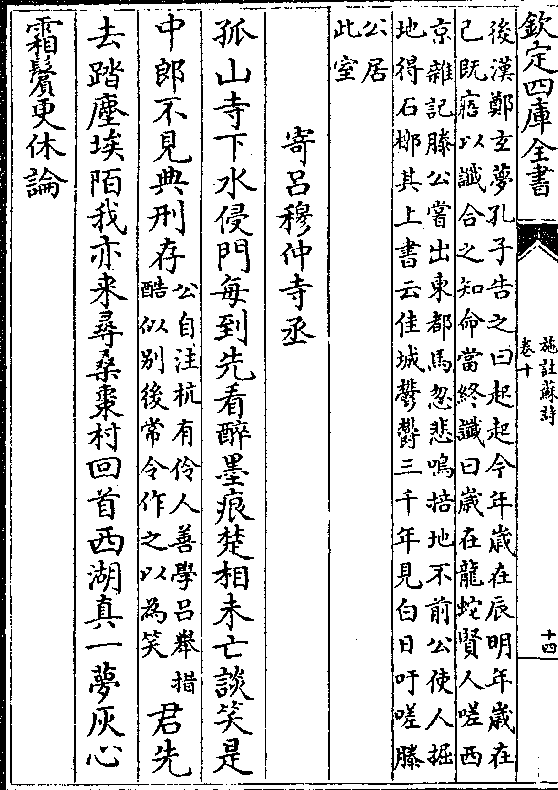 欽定四庫全書
施註蘇詩
卷十
十四
後漢鄭玄夢孔子告之曰起起今年歲在辰明年歲在
巳既寤以讖合之知命當終讖曰歲在龍蛇賢人嗟西
京雜記滕公嘗出東都馬忽悲鳴掊地不前公使人掘
地得石槨其上書云佳城鬱鬱三千年見白日吁嗟滕
公居
此室
寄呂穆仲寺丞
孤山寺下水侵門每到先看醉墨痕楚相未亡談笑是
中郎不見典刑存公自注杭有伶人善學呂舉措酷似别後常令作之以為笑君先
去踏塵埃陌我亦来尋桑棗村回首西湖真一夢灰心
霜鬢更休論